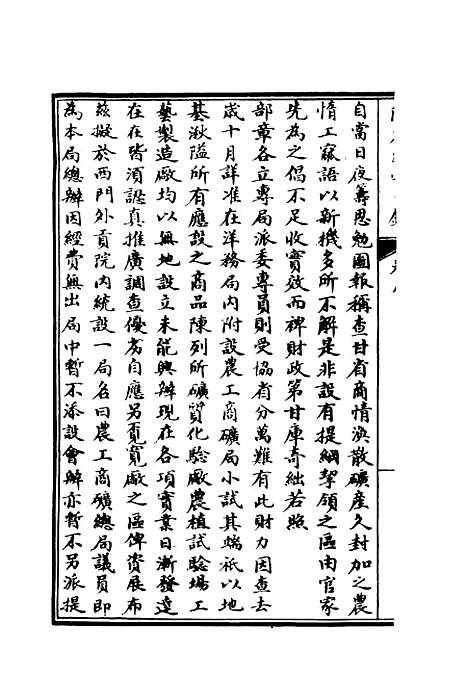 自當日夜籌思勉圖報稱查甘省商情渙散礦產久封加之農
惰工窳語以新機多所不解是非設有提綱挈領之區由官家
先為之倡不足收實效而裨財政第甘庫奇絀若照
部章各立專局派委專員則受協省分萬難有此財力因查去
歲十月詳准在洋務局內附設農工商礦局小試其端祇以地
基湫隘所有應設之商品陳列所礦質化驗廠農植試驗場工
藝製造廠均以無地設立未能興辦現在各項實業日漸發達
在在皆須認真推廣調查優劣自應另覓寬廠之區俾資展布
茲擬於西門外貢院內統設一局名曰農工商礦總局議員即
為本局總辦因經費無出局中暫不添設會辦亦暫不另派提